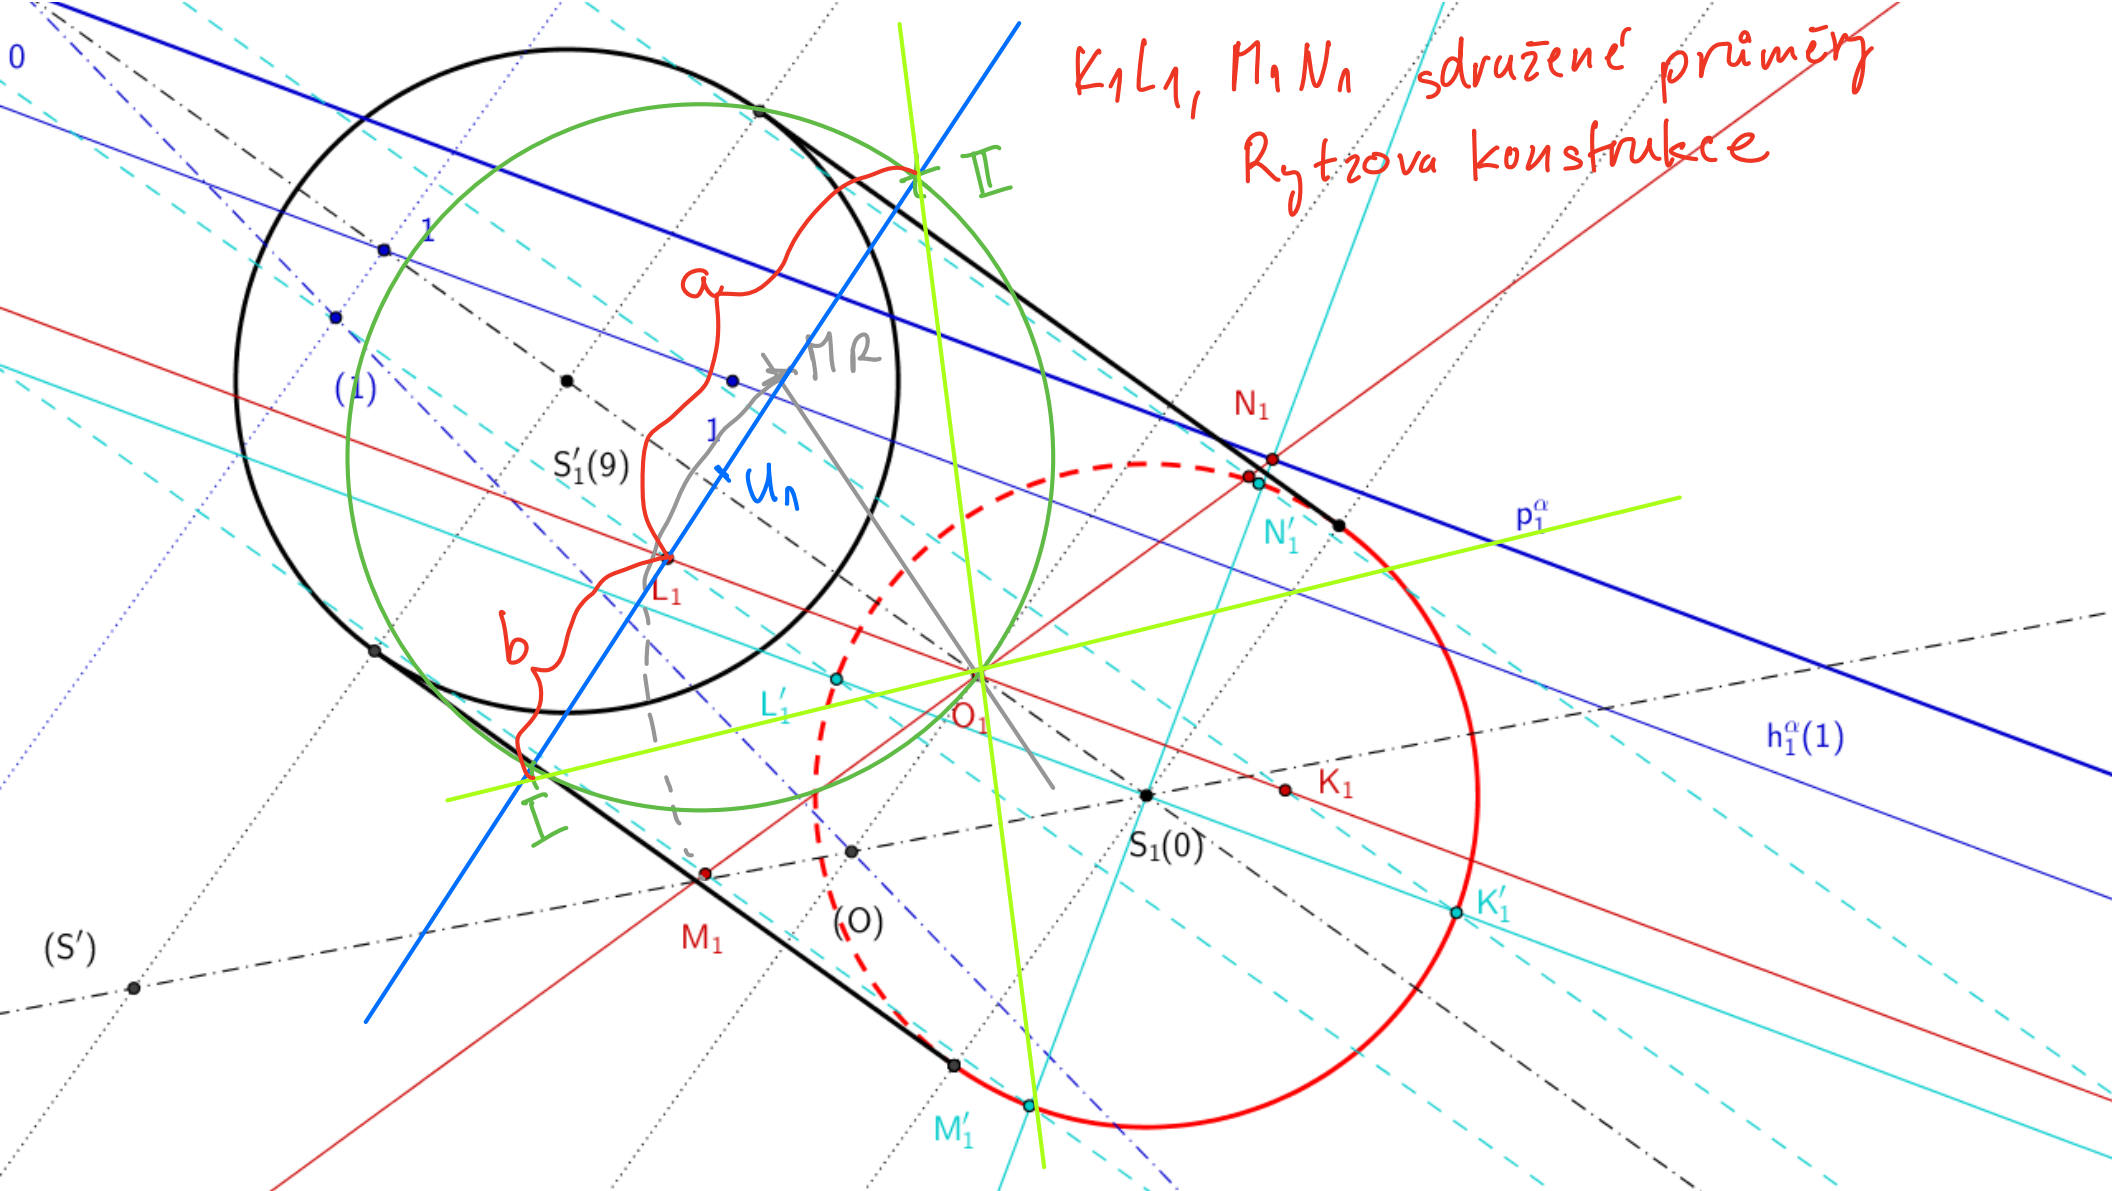 K₁L₁, M₁N₁ sdružené průměry
Rytzova konstrukce
0
1
II
a
MR
(1)
1
S′₁(9)
U₁
N₁
N′₁
p₁^α
L₁
b
L′₁
O₁
h₁^α(1)
K₁
I
S₁(0)
K′₁
(O)
M₁
(S′)
M′₁